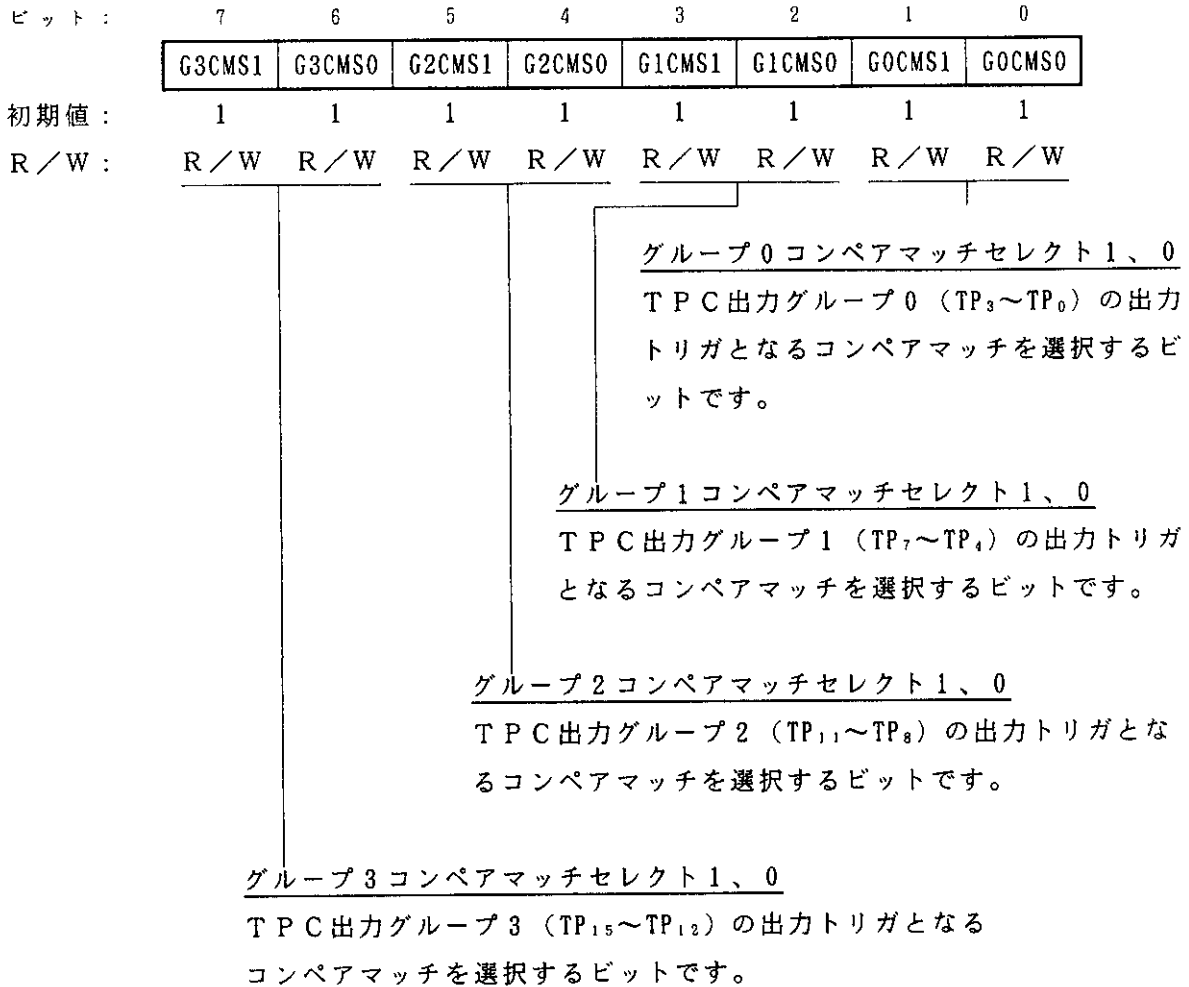 ビット： 7 6 5 4 3 2 1 0
G3CMS1 G3CMS0 G2CMS1 G2CMS0 G1CMS1 G1CMS0 G0CMS1 G0CMS0
初期値： 1 1 1 1 1 1 1 1
R／W： R／W R／W R／W R／W R／W R／W R／W R／W
グループ0コンペアマッチセレクト1、0
TPC出力グループ0（TP₃～TP₀）の出力
トリガとなるコンペアマッチを選択するビ
ットです。
グループ1コンペアマッチセレクト1、0
TPC出力グループ1（TP₇～TP₄）の出力トリガ
となるコンペアマッチを選択するビットです。
グループ2コンペアマッチセレクト1、0
TPC出力グループ2（TP₁₁～TP₈）の出力トリガとな
るコンペアマッチを選択するビットです。
グループ3コンペアマッチセレクト1、0
TPC出力グループ3（TP₁₅～TP₁₂）の出力トリガとなる
コンペアマッチを選択するビットです。